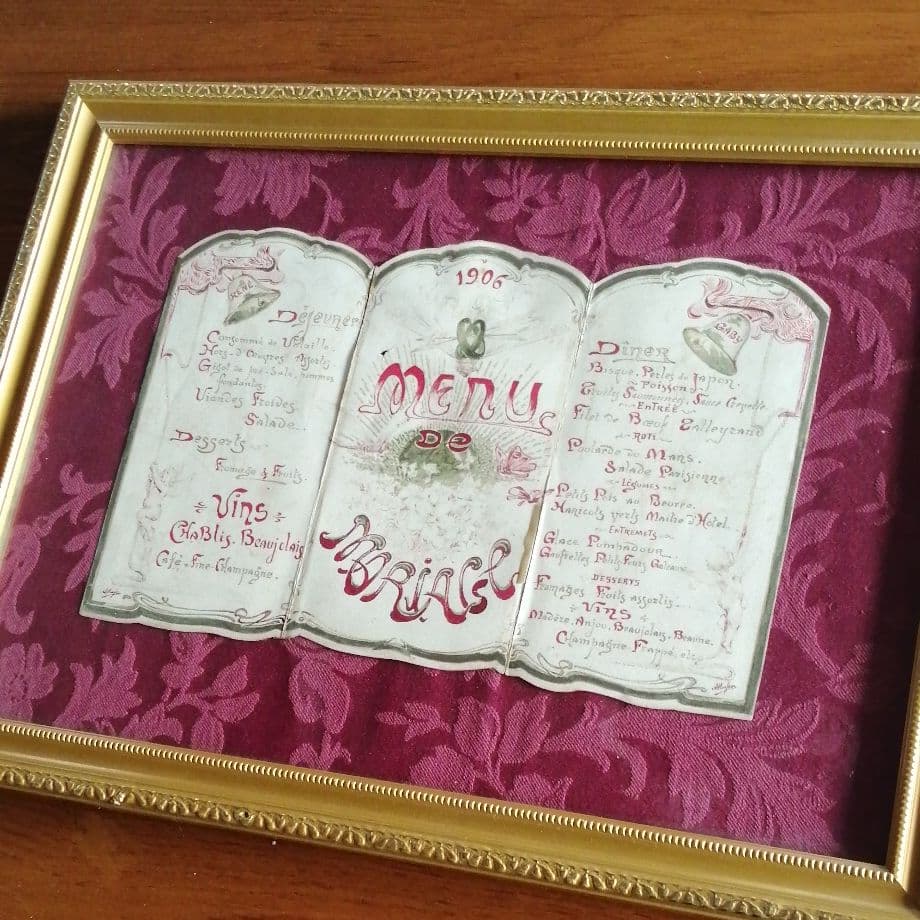 RENÉ
Déjeuner
Consommé de Volaille.
Hors-d'Œuvres Assortis.
Gigot de Pré-Salé, pommes
fondantes.
Viandes Froides
Salade
Desserts
Fromage & Fruits.
Vins
Chablis, Beaujolais
Café, Fine-Champagne.
1906
Menu
de
Mariage
GABY
Dîner
Bisque, Perles du Japon.
Poisson
Truites Saumonées, Sauce
ENTRÉE
Filet de Bœuf Talleyrand
Roti
Poularde du Mans.
Salade Parisienne
Légumes
Petits Pois au Beurre.
Haricots verts Maitre d'Hôtel.
ENTREMETS
Glace Pompadour
Gauffrettes, Petits Fours
DESSERTS
Fromages Fruits assortis
Vins
Madère, Anjou, Beaujolais, Beaune.
Champagne Frappé, etc.